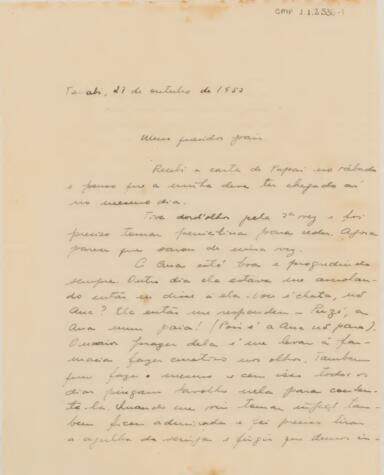 CMP 1.1.2.536-1
27 de outubro de 1952
Meus queridos pais
Recebi a carta de Papai no sábado
e penso que a minha deve ter chegado aí
no mesmo dia.
Tive dord'olhos pela 2ª vez e foi
preciso tomar penicilina para ceder. Agora
parece que sarou de uma vez.
A Ana está boa e progredindo
sempre. Outro dia ela estava me
então eu disse a ela: você é chata, né
Ana? Ela então me respondeu
Ana num paia! (Pois é a Ana não para).
O maior prazer dela é me levar à far-
macia fazer curativo nos olhos. Tambem
quer fazer o mesmo e com isso todos os
dias pingam lavolho nela para conten-
tá-la. Quando me vois tomar injeção tam-
bem ficou admirada e foi preciso tirar
a agulha da seringa e fingir que damos in-